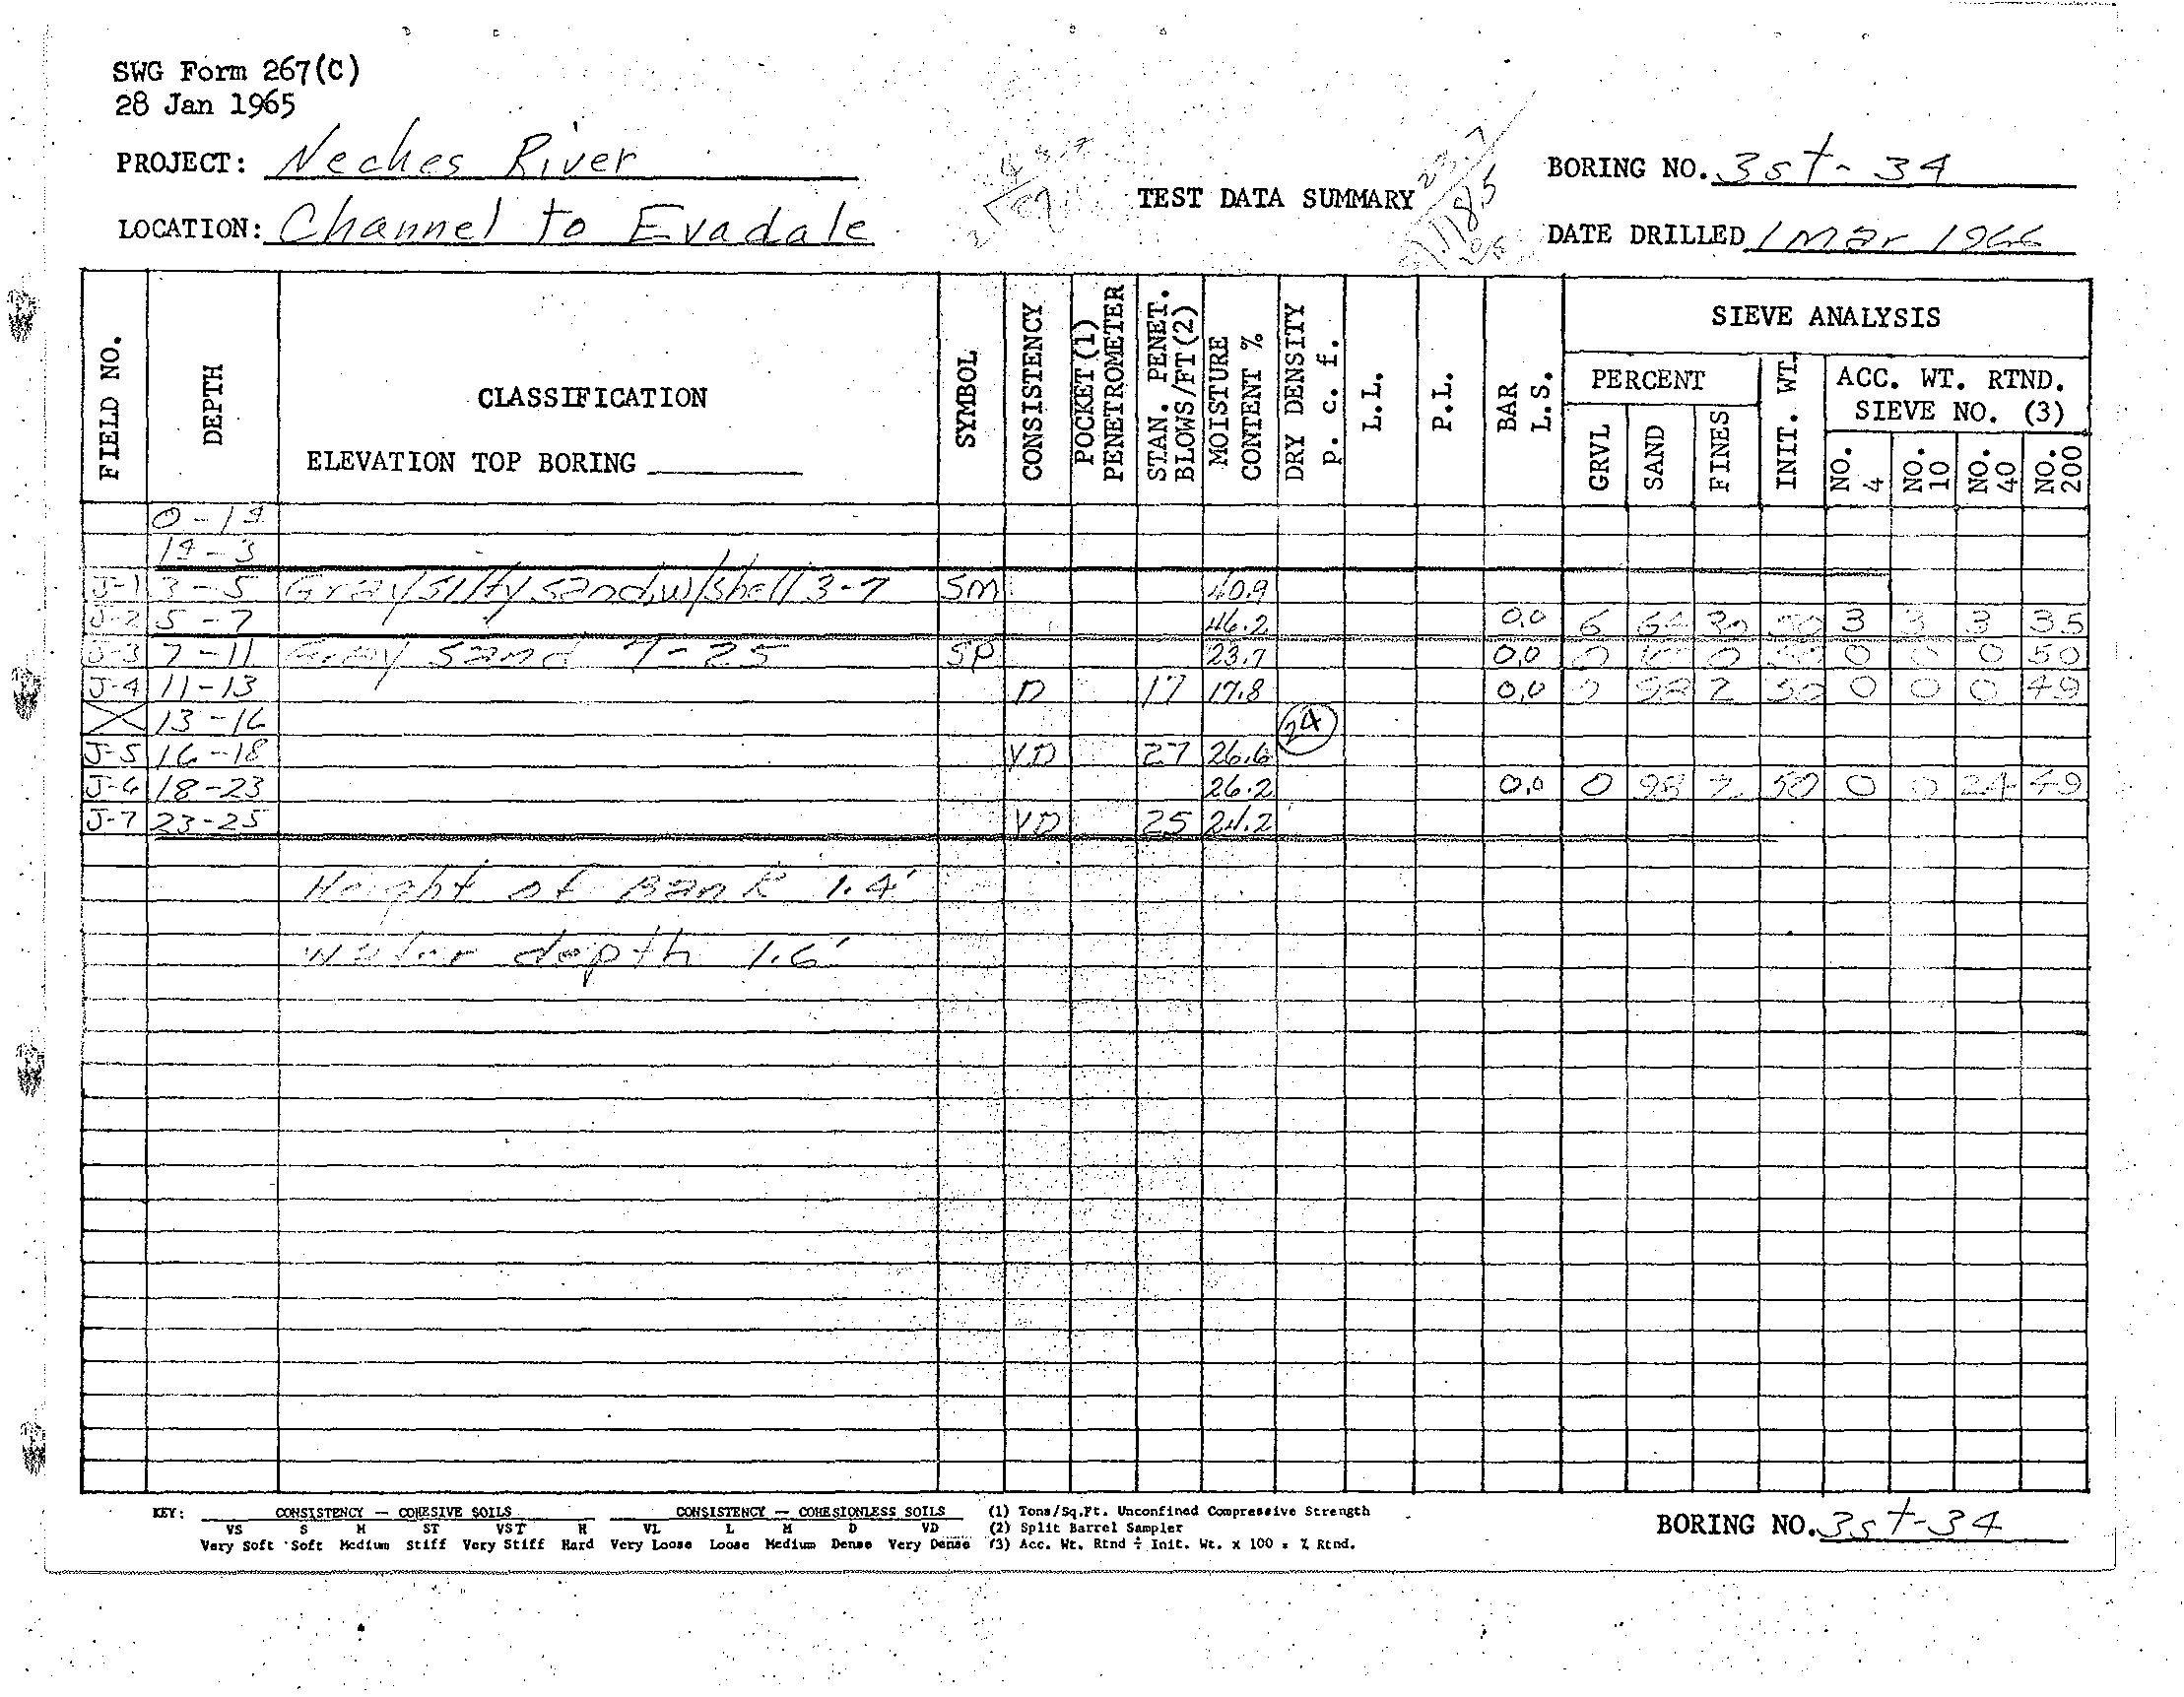 SWG Form 267(C)
28 Jan 1965
PROJECT: Neches River
BORING NO. 3st-34
TEST DATA SUMMARY
LOCATION: Channel to Evadale
DATE DRILLED 1 Mar 1966
FIELD NO. DEPTH CLASSIFICATION SYMBOL CONSISTENCY POCKET (1) PENETROMETER STAN. PENET. BLOWS/FT (2) MOISTURE CONTENT % DRY DENSITY p. c. f. L.L. P.L. BAR L.S. SIEVE ANALYSIS
ELEVATION TOP BORING
PERCENT INIT. WT. ACC. WT. RTND. SIEVE NO. (3)
GRVL SAND FINES NO. 4 NO. 10 NO. 40 NO. 200
0-14
14-3
J-1 3-5 Gray silty sand, w/shell 3-7 SM 40.9
J-2 5-7 46.2 0.0 6 64 30 50 3 3 3 35
J-3 7-11 Gray sand 7-25 SP 23.7 0.0 0 100 0 50 0 0 0 50
J-4 11-13 D 17 17.8 0.0 0 98 2 50 0 0 0 49
X 13-16 24
J-5 16-18 VD 27 26.6
J-6 18-23 26.2 0.0 0 98 2 50 0 0 24 49
J-7 23-25 VD 25 24.2
Height of Bank 1.4'
Water depth 1.6'
KEY: CONSISTENCY — COHESIVE SOILS CONSISTENCY — COHESIONLESS SOILS (1) Tons/Sq.Ft. Unconfined Compressive Strength
VS S M ST VST H VL L M D VD (2) Split Barrel Sampler
Very Soft Soft Medium Stiff Very Stiff Hard Very Loose Loose Medium Dense Very Dense (3) Acc. Wt. Rtnd ÷ Init. Wt. x 100 = % Rtnd.
BORING NO. 3st-34